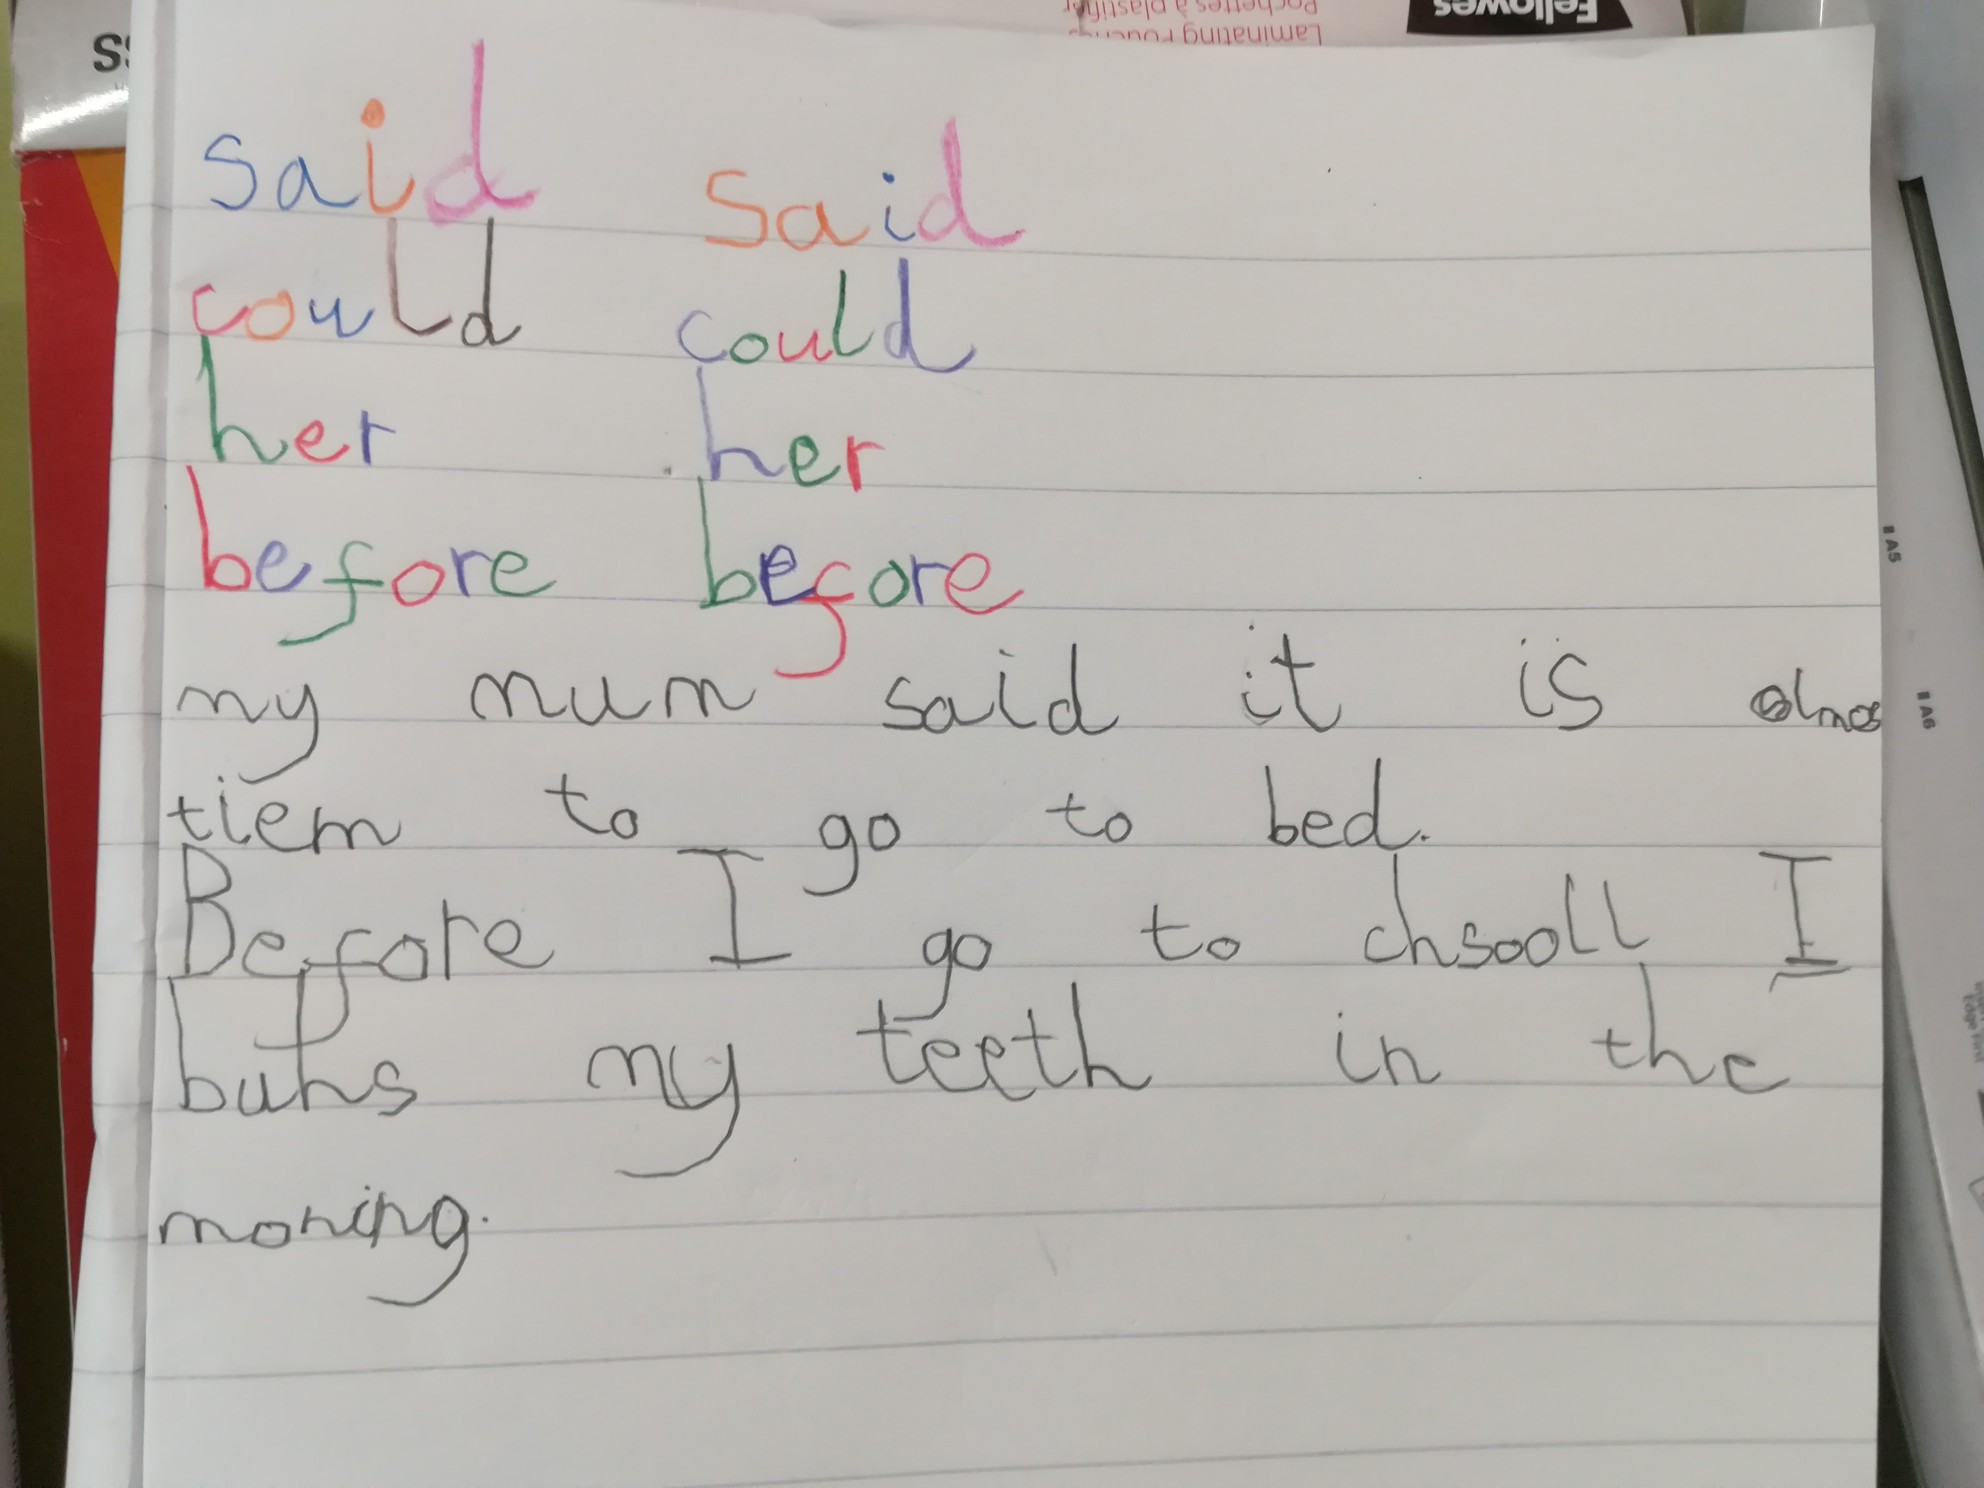 Fellowes
Laminating Pouches
Pochettes à plastifier
said said
could could
her her
before before
my mum said it is almos
tiem to go to bed.
Before I go to chsooll I
buhs my teeth in the
moning.
A5
A6